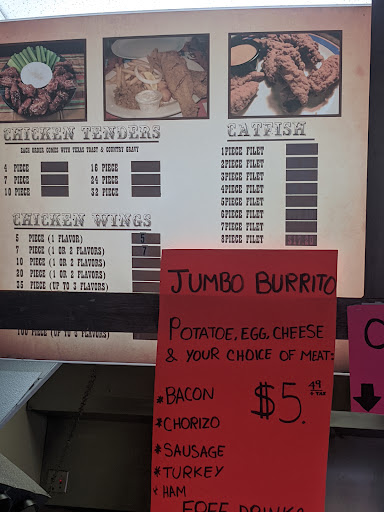 CHICKEN TENDERS
EACH ORDER COMES WITH TEXAS TOAST & COUNTRY GRAVY
4 PIECE
7 PIECE
10 PIECE
16 PIECE
24 PIECE
32 PIECE
CHICKEN WINGS
5 PIECE (1 FLAVOR) 5
7 PIECE (1 OR 2 FLAVORS) 7
10 PIECE (1 OR 2 FLAVORS)
20 PIECE (1 OR 2 FLAVORS)
25 PIECE (UP TO 3 FLAVORS)
100 PIECE (UP TO FLAVORS)
CATFISH
1 PIECE FILET
2 PIECE FILET
3 PIECE FILET
4 PIECE FILET
5 PIECE FILET
6 PIECE FILET
7 PIECE FILET
8 PIECE FILET
JUMBO BURRITO
POTATOE, EGG, CHEESE
& YOUR CHOICE OF MEAT:
*BACON
*CHORIZO
*SAUSAGE
*TURKEY
*HAM
$5.49
+ TAX
FREE DRINK
C